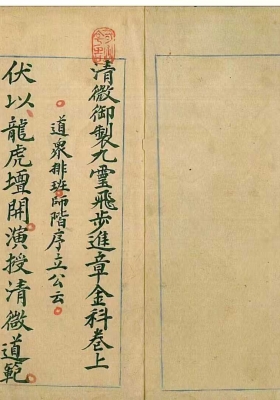 清微御製九靈飛步進章金科卷上
道衆排班師階序立公云
伏以龍虎壇開演授清微道範